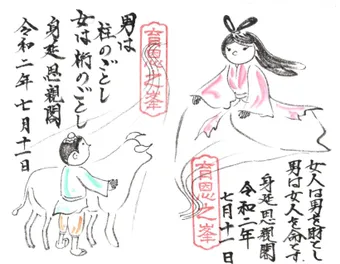 女人は男を財とし
男は女人を命とす
身延思親閣
令和二年
七月十一日
育恩之峯
育恩之峯
男は
柱のごとし
女は桁のごとし
身延思親閣
令和二年 七月十一日